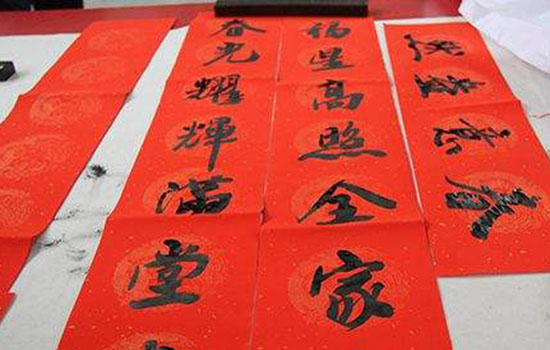 春意盎然
福星高照全家
春光耀輝满堂